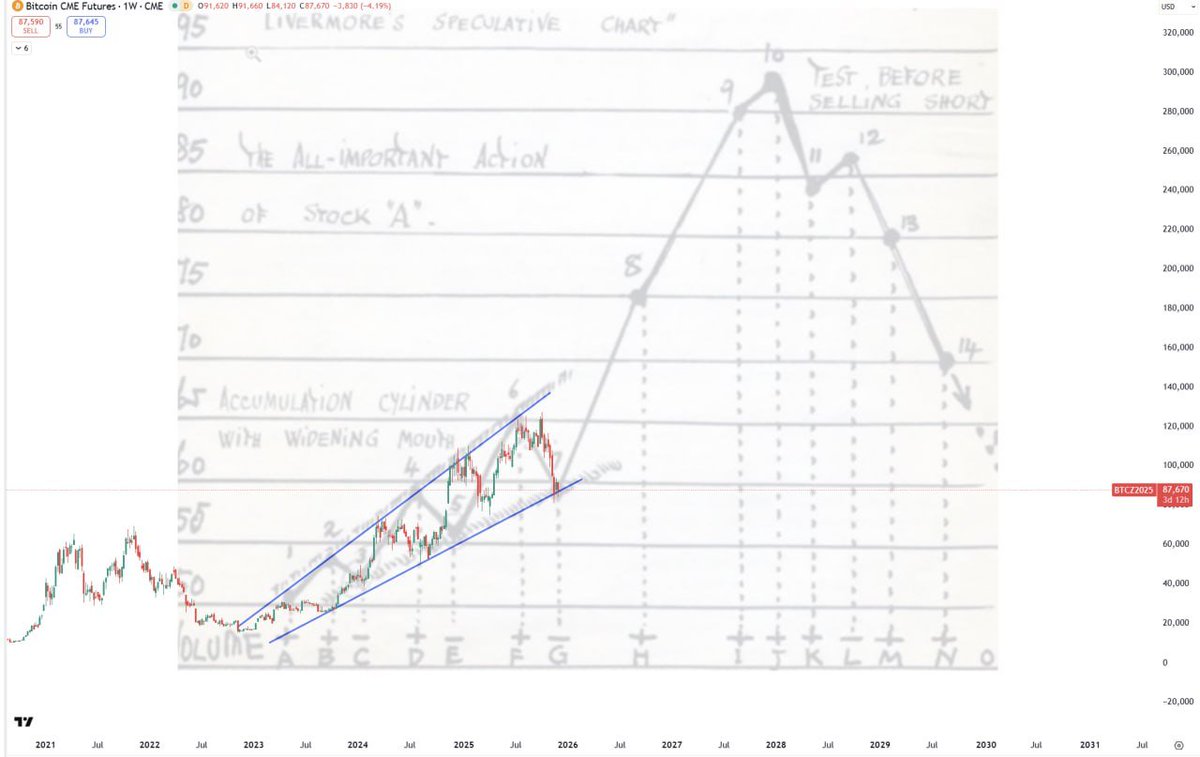 Bitcoin CME Futures · 1W · CME D O91,620 H91,660 L84,120 C87,670 −3,830 (−4.19%)
USD
87,590 SELL 55 87,645 BUY
6
95 LIVERMORE'S SPECULATIVE CHART"
90
85 THE ALL-IMPORTANT ACTION
80 OF STOCK "A".
75
70
65 ACCUMULATION CYLINDER
WITH WIDENING MOUTH
60
55
50
VOLUME
TEST, BEFORE
SELLING SHORT
1
2
3
4
6
8
9
10
11
12
13
14
A B C D E F G H I J K L M N O
320,000
300,000
280,000
260,000
240,000
220,000
200,000
180,000
160,000
140,000
120,000
100,000
BTCZ2025 87,670
3d 12h
60,000
40,000
20,000
0
−20,000
2021 Jul 2022 Jul 2023 Jul 2024 Jul 2025 Jul 2026 Jul 2027 Jul 2028 Jul 2029 Jul 2030 Jul 2031 Jul